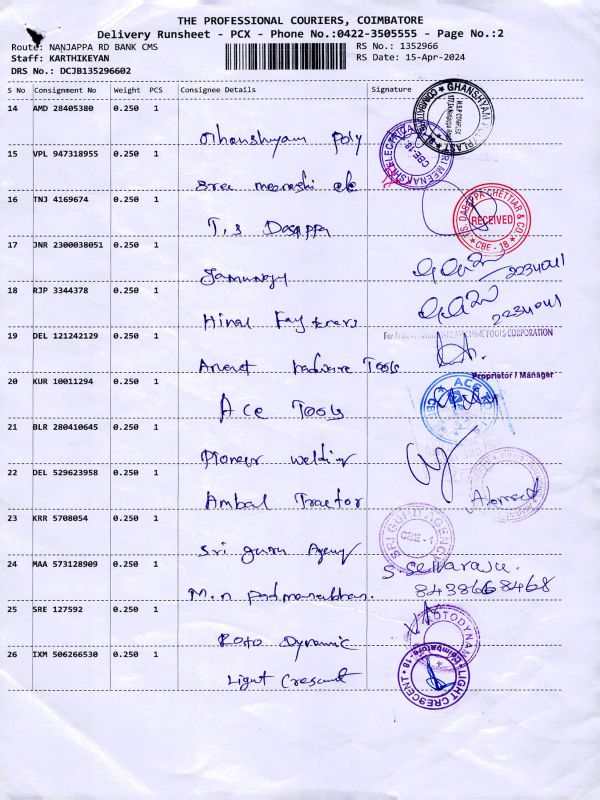 THE PROFESSIONAL COURIERS, COIMBATORE
Delivery Runsheet - PCX - Phone No.:0422-3505555 - Page No.:2
Route: NANJAPPA RD BANK CMS RS No.: 1352966
Staff: KARTHIKEYAN RS Date: 15-Apr-2024
DRS No.: DCJB135296602
S No Consignment No Weight PCS Consignee Details Signature
14 AMD 28405380 0.250 1
Ghanshyam Poly
GHANSHYAM POLYPLAST
15 VPL 947318955 0.250 1
Sree meenashi ele
SRI MEENAKSHI ELECTRICALS CBE-18
16 TNJ 4169674 0.250 1
T.S Dasappa
S. DASAPPA CHETTIAR & CO. RECEIVED CBE - 18
17 JNR 2300038051 0.250 1
Jamunagy
2234011
18 RJP 3344378 0.250 1
Hinal Fasteners
2234011
19 DEL 121242129 0.250 1
MACHINE TOOLS CORPORATION
Anant hardware Tools
Proprietor / Manager
20 KUR 10011294 0.250 1
Ace Tools
ACE
21 BLR 280410645 0.250 1
Pioneer welding
22 DEL 529623958 0.250 1
Ambal Tractor
23 KRR 5708054 0.250 1
Sri guru Agency
SRI GURU AGENCY CBE - 1
24 MAA 573128909 0.250 1
S. Selvaraju.
8438668468
M.n Padmanabhan.
25 SRE 127592 0.250 1
Roto Dynamic
ROTODYNAM
26 IXM 506266530 0.250 1
Light Cresant
LIGHT CRESCENT Coimbatore-18